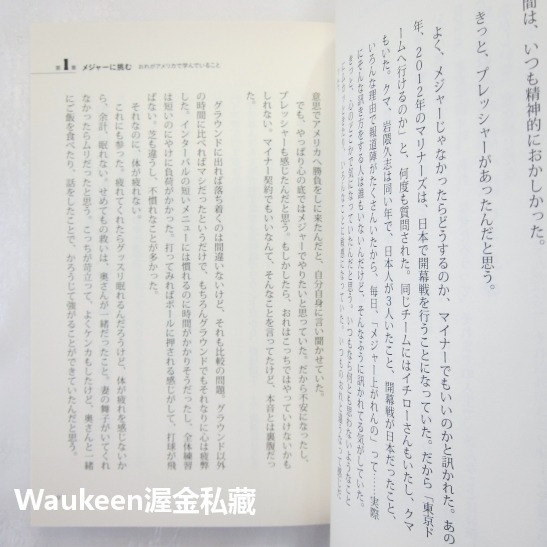 間は、いつも精神的におかしかった。
きっと、プレッシャーがあったんだと思う。
よく、メジャーじゃなかったらどうするのか、マイナーでもいいのかと訊かれた。あの
年、2012年のマリナーズは、日本で開幕戦を行うことになっていた。だから「東京ド
ームへ行けるのか」と、何度も質問された。同じチームにはイチローさんもいたし、クマ
もいた。クマ、岩隈久志は同い年で、日本人が3人いたこと、開幕戦が日本だったこと、
いろんな理由で報道陣がたくさんいたから、毎日、「メジャー上がれんの」って……実際
にそんな訊き方をする人は誰もいないんだけど、そんなふうに訊かれてる気がしていた。
第1章 メジャーに挑む おれがアメリカで学んでいること
意思でアメリカへ勝負をしに来たんだと、自分自身に言い聞かせていた。
でも、やっぱり心の底ではメジャーでやりたいと思っていた。だから不安になったし、
プレッシャーも感じたんだと思う。もしかしたら、おれはこっちではやっていけないかも
しれない。マイナー契約でもいいなんて、そんなことを言ってたけど、本音とは裏腹だっ
た。
グラウンドに出れば落ち着くのは間違いないけど、それも比較の問題。グラウンド以外
の時間に比べればマシだったというだけで、もちろんグラウンドでもそれなりに心は疲弊
した。インターバルの短いメニューには慣れるのに時間がかかりそうだったし、全体練習
は短いのにやけに負荷がかかった。打ってみればボールに押される感じがして、打球が飛
ばない。芝も違うし、不慣れなことが多かった。
それなのに、体が疲れない。
これにも参った。疲れてくれたらグッスリ眠れるんだろうけど、体が疲れを感じないか
ら、余計、眠れない。せめてもの救いは、奥さんが一緒だったこと。妻の舞子がいてくれ
なかったらムリだったと思う。こっちが苛立って、よくケンカもしたけど、奥さんと一緒
にご飯を食べたり、話をしたことで、かろうじて強がることができていたんだと思う。
Waukeen渥金私藏